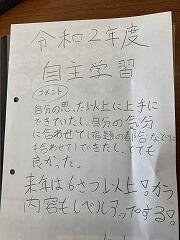 令和2年度
自主学習
コメント
自分の思った以上に上手に
できていたし、自分の気分
に合わせて(宿題の都合などに
も合わせて)できたし、とても
良かった。
来年は6さつ以上!かつ
内容もレベルアップする!